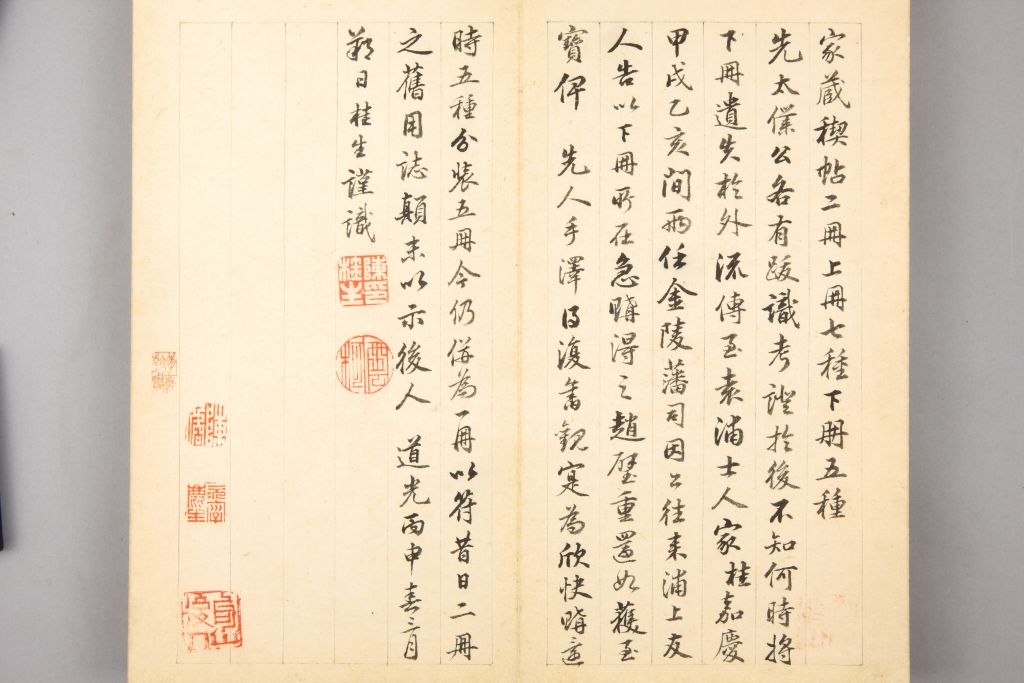 家藏稧帖二冊上冊七種下冊五種
先太僕公各有跋識考證於後不知何時將
下冊遺失於外流傳至袁浦士人家桂嘉慶
甲戌乙亥間兩任金陵藩司因公往来浦上友
人告以下冊所在急購得之趙璧重還如獲至
寶俾 先人手澤得復舊觀寔為欣快購還
時五種分裝五冊今仍併為一冊以符昔日二冊
之舊用誌顛末以示後人 道光丙申春三月
朔日桂生謹識
陳印桂生